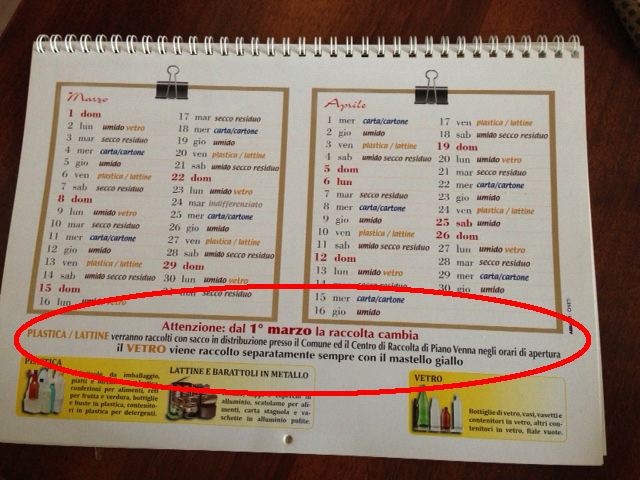 Marzo
1 dom
2 lun umido vetro
3 mar secco residuo
4 mer carta/cartone
5 gio umido
6 ven plastica / lattine
7 sab secco residuo
8 dom
9 lun umido vetro
10 mar secco residuo
11 mer carta/cartone
12 gio umido
13 ven plastica / lattine
14 sab umido secco residuo
15 dom
16 lun umido vetro
17 mar secco residuo
18 mer carta/cartone
19 gio umido
20 ven plastica / lattine
21 sab umido secco residuo
22 dom
23 lun umido vetro
24 mar indifferenziato
25 mer carta/cartone
26 gio umido
27 ven plastica / lattine
28 sab umido secco residuo
29 dom
30 lun umido vetro
secco residuo
Aprile
1 mer carta/cartone
2 gio umido
3 ven plastica / lattine
4 sab umido secco residuo
5 dom
6 lun
7 mar secco residuo
8 mer carta/cartone
9 gio umido
10 ven plastica / lattine
11 sab umido secco residuo
12 dom
13 lun umido vetro
14 mar secco residuo
15 mer carta/cartone
16 gio umido
17 ven plastica / lattine
18 sab umido secco residuo
19 dom
20 lun umido vetro
21 mar secco residuo
22 mer carta/cartone
23 gio umido
24 ven plastica / lattine
25 sab umido
26 dom
27 lun umido vetro
28 mar secco residuo
29 mer carta/cartone
30 gio umido
Attenzione: dal 1° marzo la raccolta cambia
PLASTICA / LATTINE verranno raccolti con sacco in distribuzione presso il Comune ed il Centro di Raccolta di Piano Venna negli orari di apertura
il VETRO viene raccolto separatamente sempre con il mastello giallo
PLASTICA
da imballaggio,
piatti e
confezioni per alimenti, reti
per frutta e verdura, bottiglie
e buste in plastica, contenito-
ri in plastica per detergenti.
LATTINE E BARATTOLI IN METALLO
in
alluminio, scatolame per ali-
menti, carta stagnola e va-
schette in alluminio pulite.
VETRO
Bottiglie di vetro, vasi, vasetti e
contenitori in vetro, altri con-
tenitori in vetro, fiale vuote.